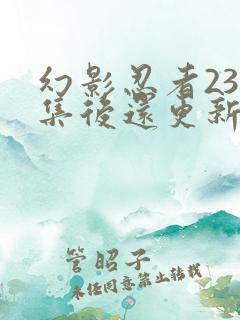 幻影忍者23
集後還更新
管昭子
未任同意禁止转载